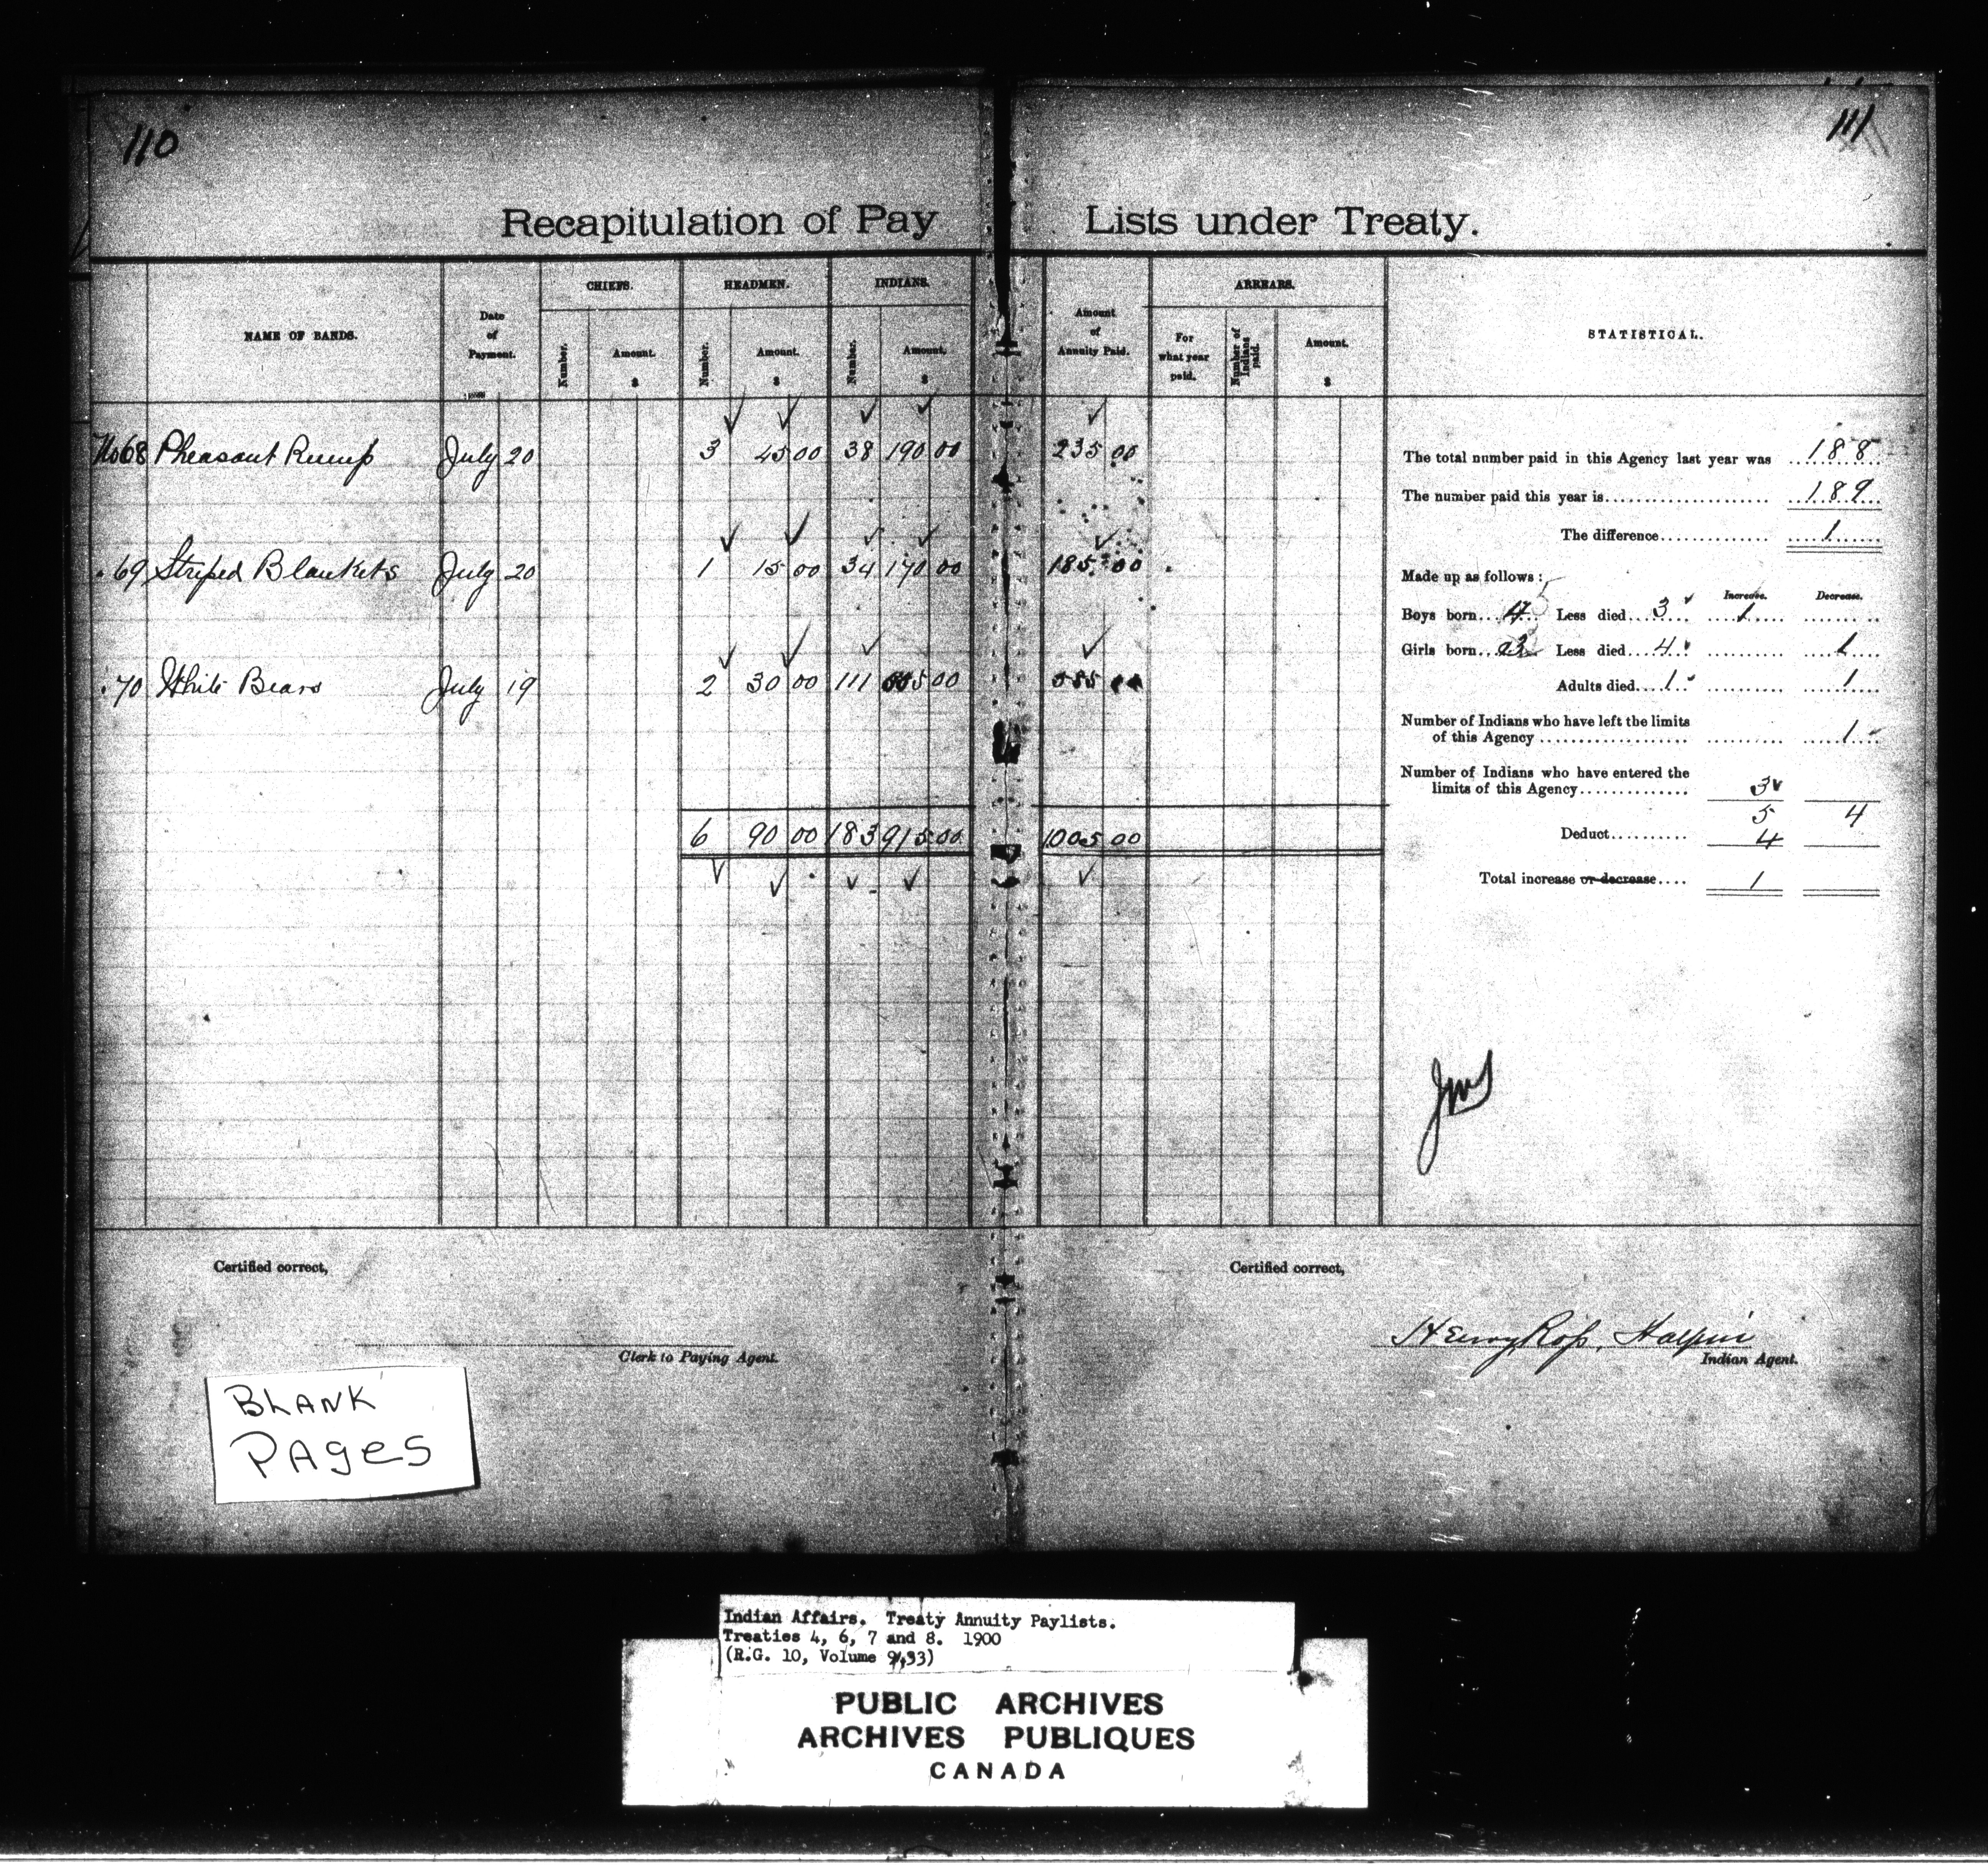 110
111
Recapitulation of Pay Lists under Treaty.
NAME OF BANDS.
Date of Payment.
CHIEFS.
Number.
Amount.
$
HEADMEN.
Number.
Amount.
$
INDIANS.
Number.
Amount.
$
Amount of Annuity Paid.
ARREARS.
For what year paid.
Number of Indians paid.
Amount.
$
STATISTICAL.
No 68 Pheasant Rump July 20 3 45 00 38 190 00 235 00
69 Striped Blankets July 20 1 15 00 34 170 00 185 00
70 White Bears July 19 2 30 00 111 555 00 585
6 90 00 183 915 00 1005 00
The total number paid in this Agency last year was 188
The number paid this year is 189
The difference 1
Made up as follows:
Increase. Decrease.
Boys born 4 5 Less died 3 1
Girls born 3 Less died 4 1
Adults died 1 1
Number of Indians who have left the limits
of this Agency 1
Number of Indians who have entered the
limits of this Agency 3
5 4
Deduct 4
Total increase or decrease 1
Certified correct,
Clerk to Paying Agent.
Certified correct,
Henry Ross Halpin
Indian Agent.
BLANK
PAGES
Indian Affairs. Treaty Annuity Paylists.
Treaties 4, 6, 7 and 8. 1900
(R.G. 10, Volume 9433)
PUBLIC ARCHIVES
ARCHIVES PUBLIQUES
CANADA